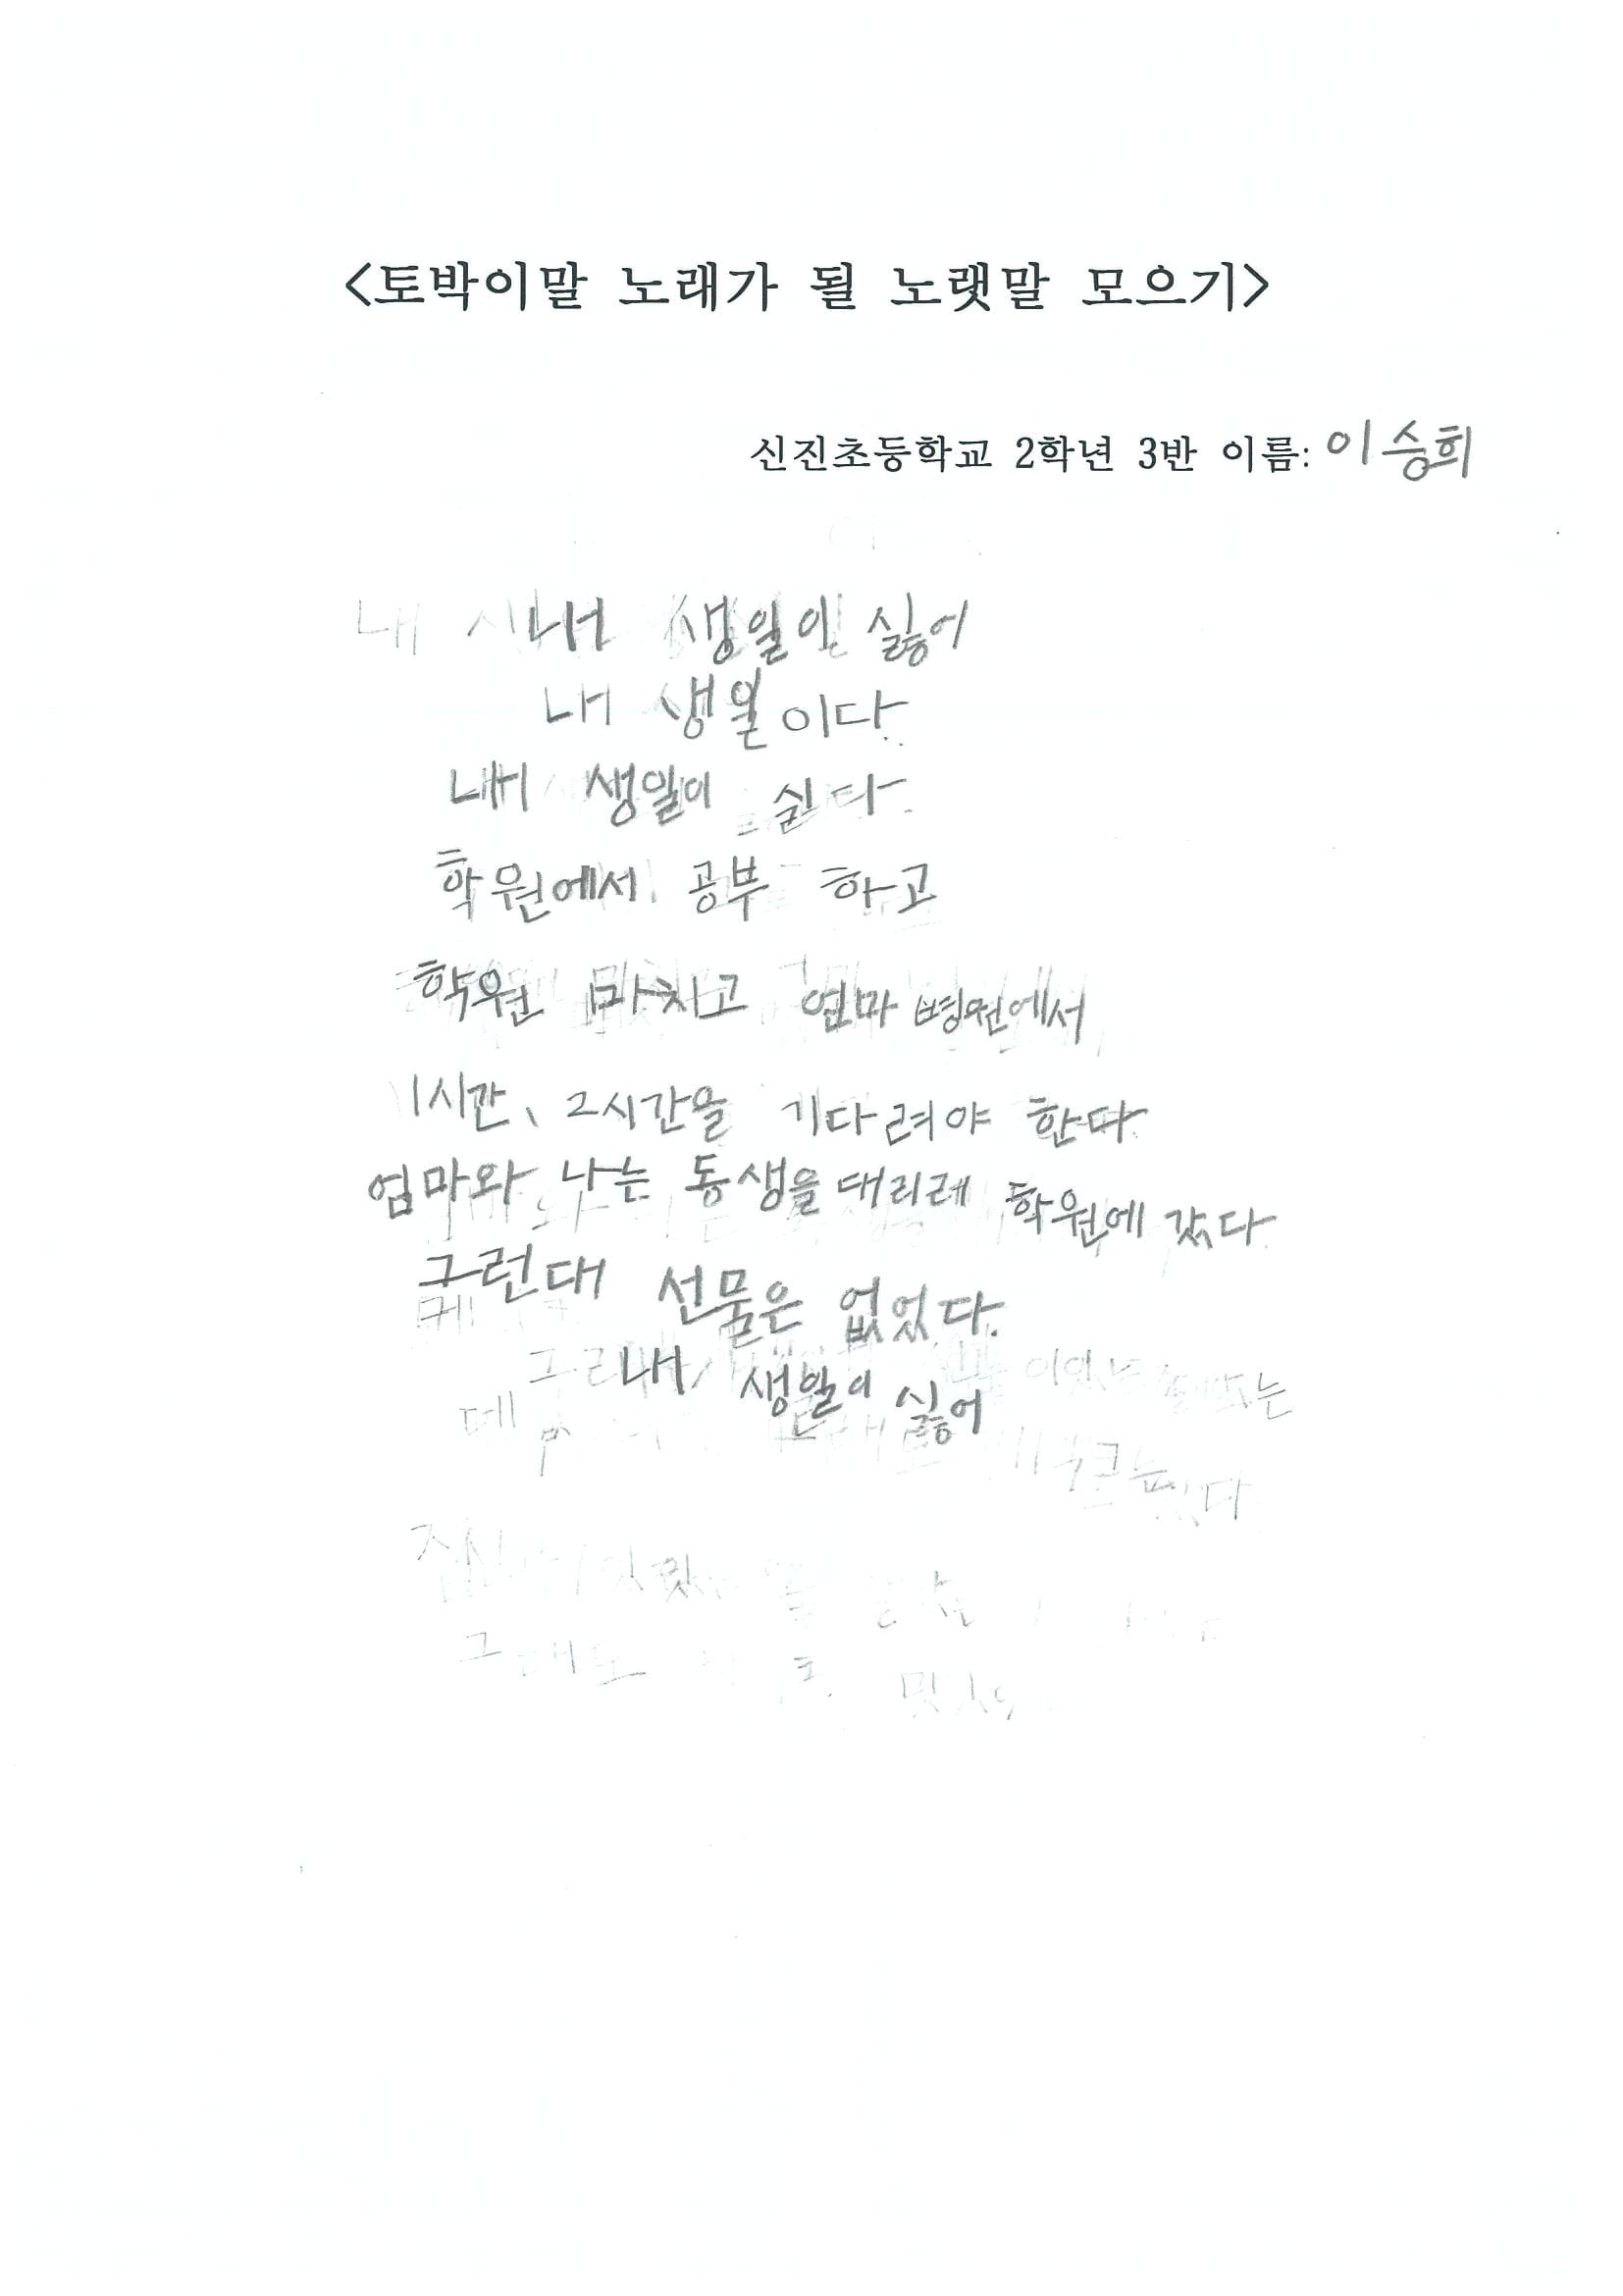 <토박이말 노래가 될 노랫말 모으기>
신진초등학교 2학년 3반 이름: 이승희
내 생일이 싫어
내 생일이다.
내 생일이 싫다.
학원에서 공부 하고
학원 마치고 엄마 병원에서
1시간, 2시간을 기다려야 한다.
엄마와 나는 동생을 대리레 학원에 갔다.
그런대 선물은 없었다.
내 생일이 싫어